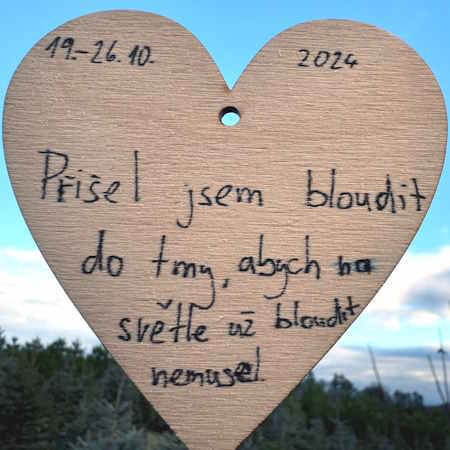 19.-26.10. 2024
Přišel jsem bloudit
do tmy, abych na
světle už bloudit
nemusel.